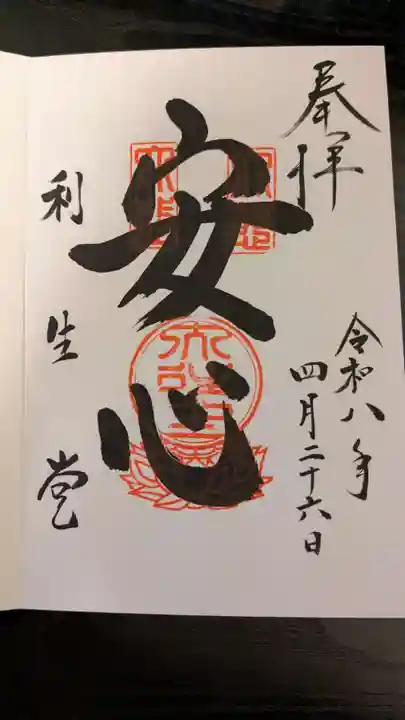 奉拝
令和八年
四月二十六日
安心
利生堂